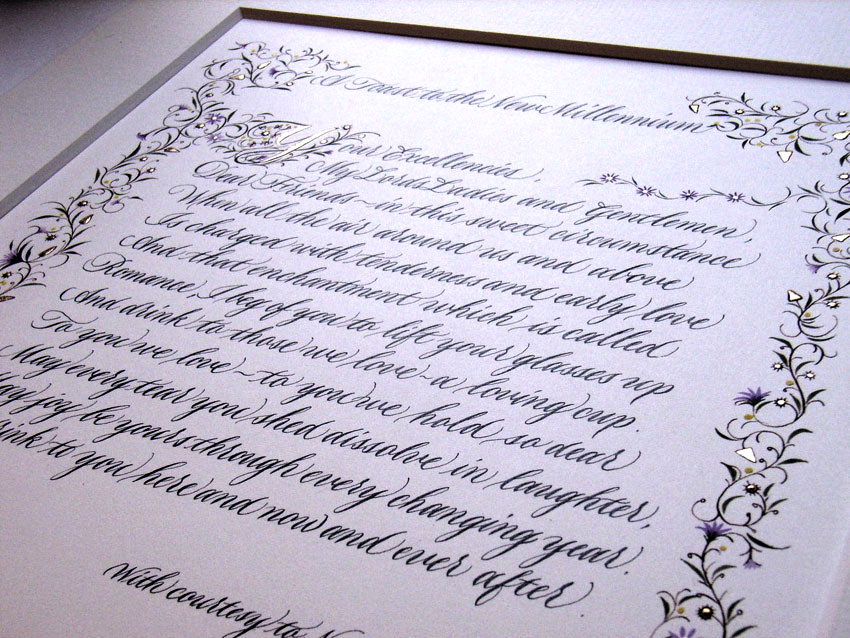 A Toast to the New Millennium
Your Excellencies,
My Lords Ladies and Gentlemen,
Dear Friends ~ in this sweet circumstance
When all the air around us and above
Is charged with tenderness and early love
And that enchantment which is called
Romance, I beg of you to lift your glasses up
And drink to those we love ~ a loving cup.
To you we love ~ to you we hold so dear
May every tear you shed dissolve in laughter,
joy be yours through every changing year.
to you here and now and ever after
With courtesy to